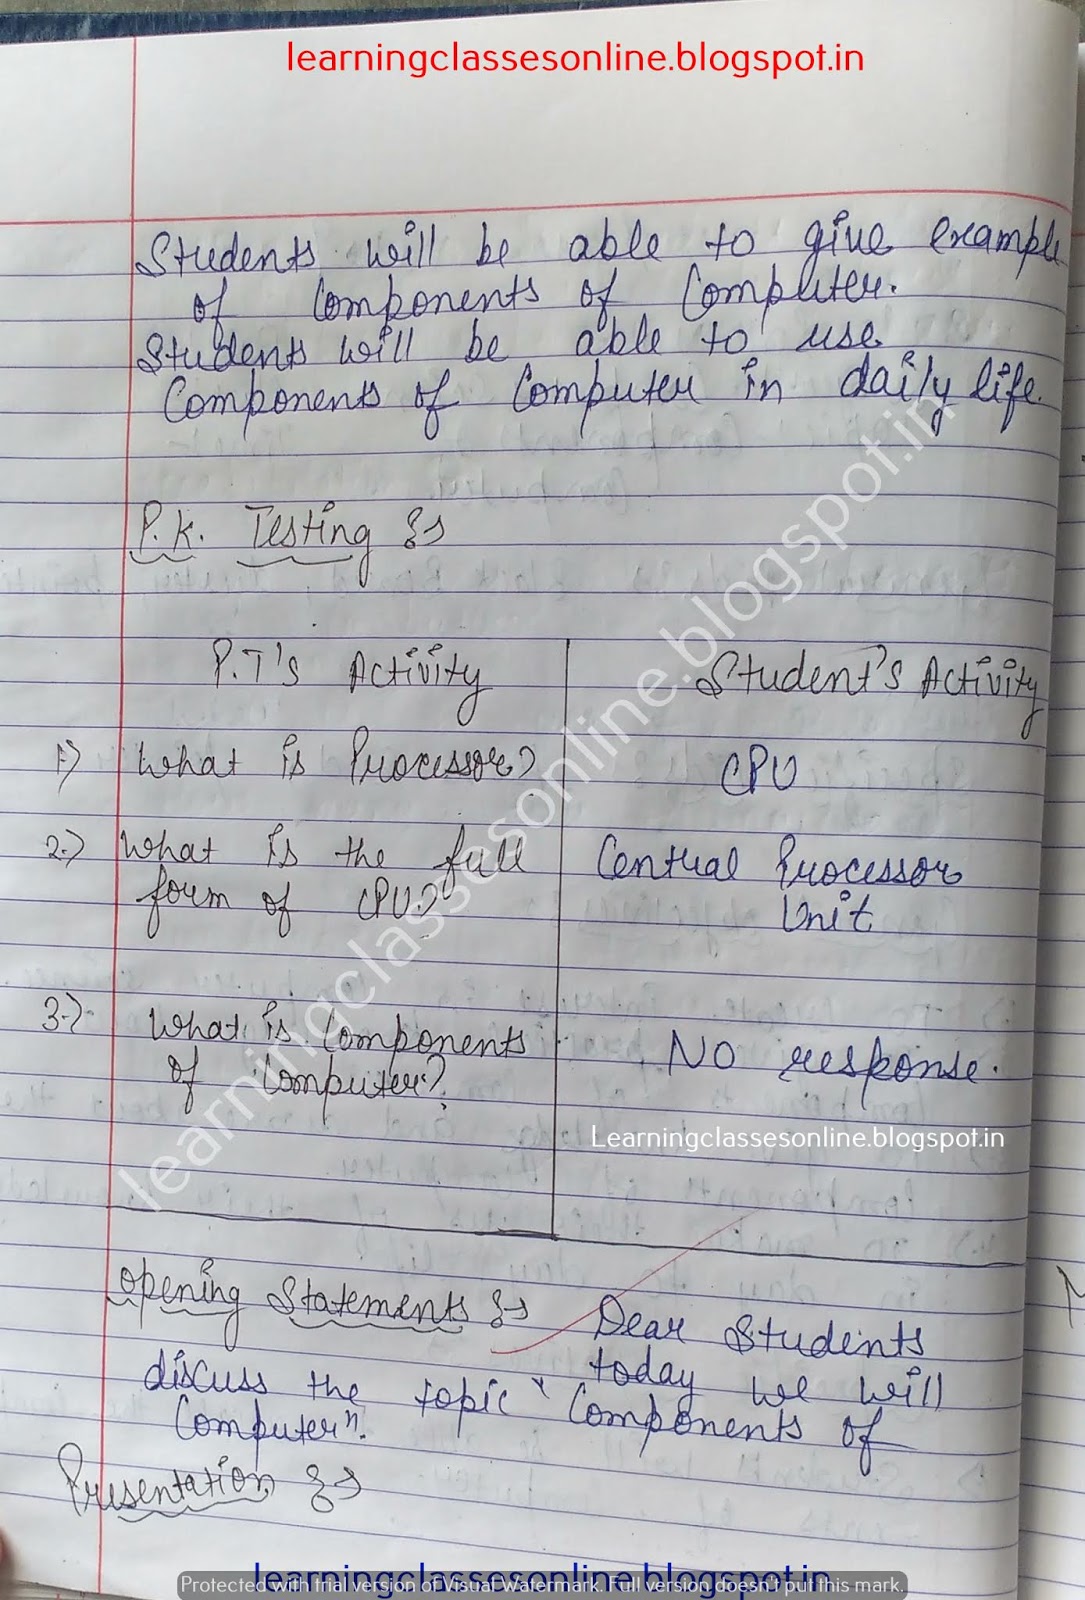 learningclassesonline.blogspot.in
Students will be able to give example
of Components of Computer.
Students will be able to use
Components of Computer in daily life.
P.K. Testing :→
P.T's Activity
Student's Activity
1.) What is Processor?
CPU
2.) What is the full
form of CPU?
Central Processor
Unit
3.) What is Components
of Computer?
No response.
learningclassesonline.blogspot.in
Learningclassesonline.blogspot.in
Opening Statements :→ Dear Students
today we will
discuss the topic "Components of
Computer".
Presentation :→
learningclassesonline.blogspot.in
Protected with trial version of Visual Watermark. Full version doesn't put this mark.